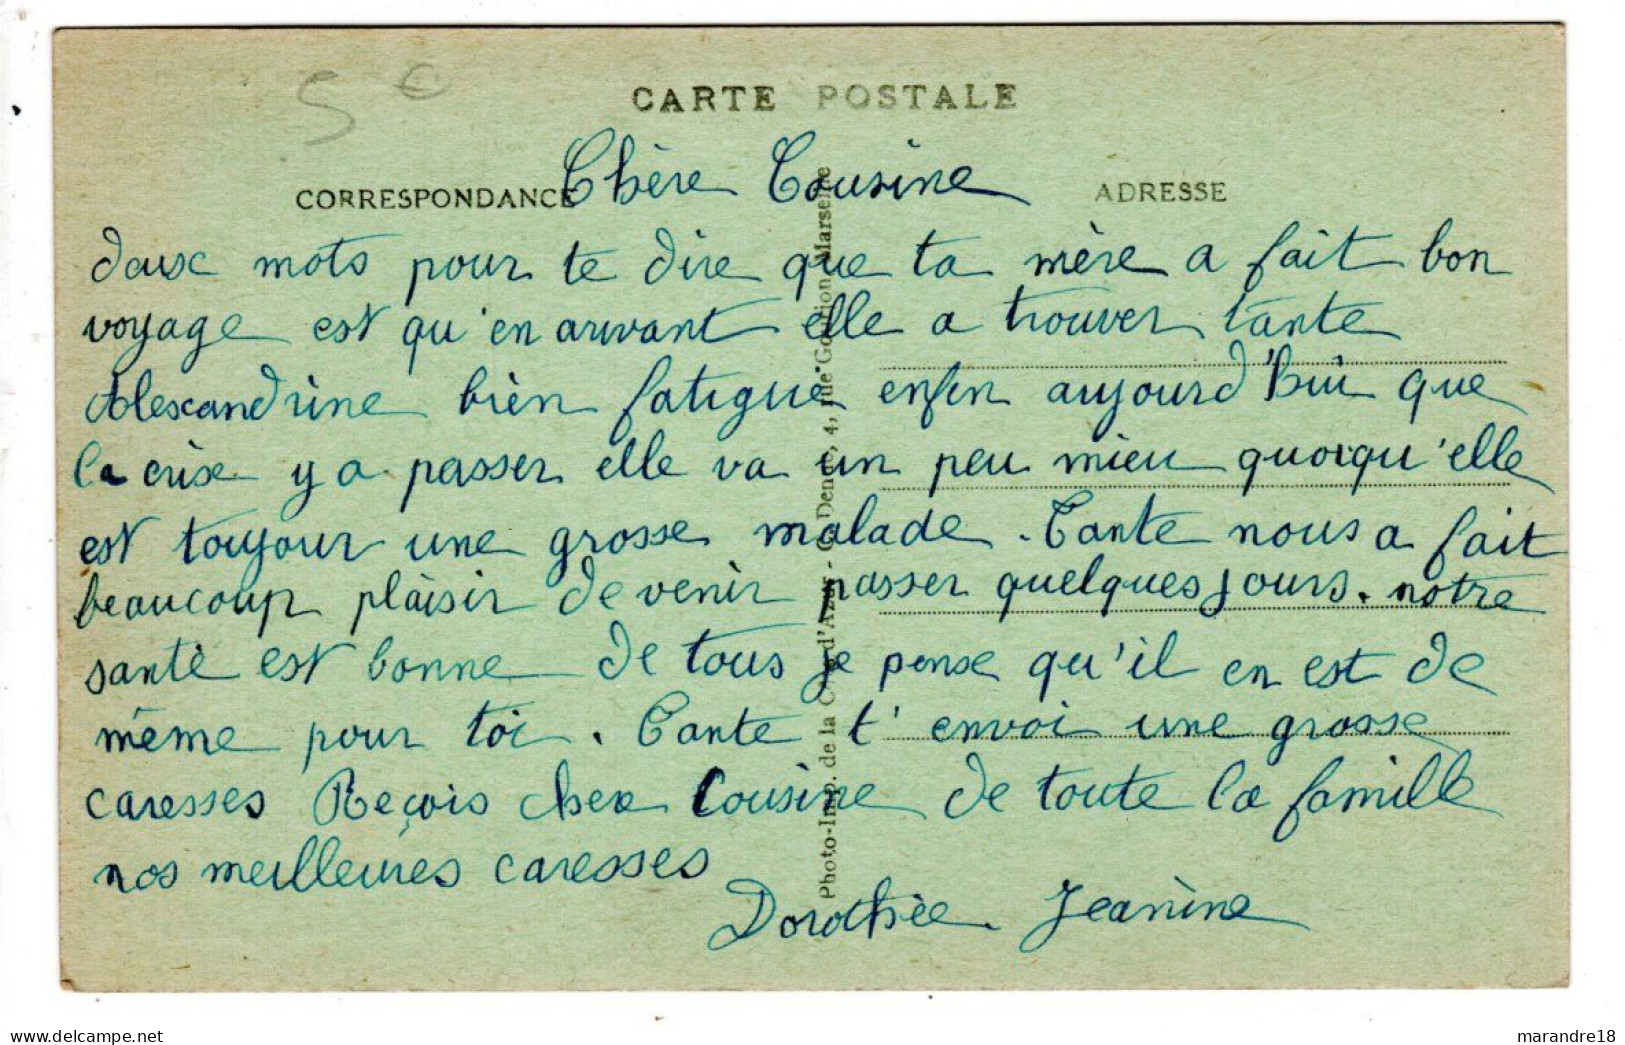 5 c
CARTE POSTALE
CORRESPONDANCE
ADRESSE
Chère Cousine
deux mots pour te dire que ta mère a fait bon
voyage est qu'en arivant elle a trouver tante
Alexandrine bien fatigue enfin aujourd'hui que
la crise y a passer elle va un peu mieu quoiqu'elle
est toujour une grosse malade. Tante nous a fait
beaucoup plaisir de venir passer quelques jours. notre
santé est bonne de tous je pense qu'il en est de
même pour toi. Tante t'envoi une grosse
caresses Reçois chere Cousine de toute la famille
nos meilleures caresses
Dorothée. Jeanine
Photo-Imp. de la d'Azur - Marseille
marandre18
www.delcampe.net